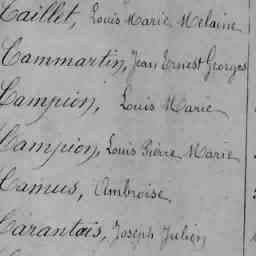 Caillet, Louis Marie Melaine
Cammartin, Jean Ernest Georges
Campion, Louis Marie
Campion, Louis Pierre Marie
Camus, Ambroise
Carantois, Joseph Julien